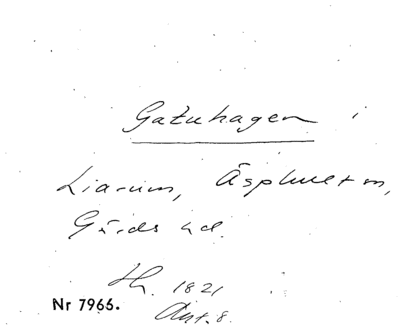 Gatuhagen i
Liarum, Äsphult sn,
Gärds hd.
Hh. 1821
Akt. 8.
Nr 7966.